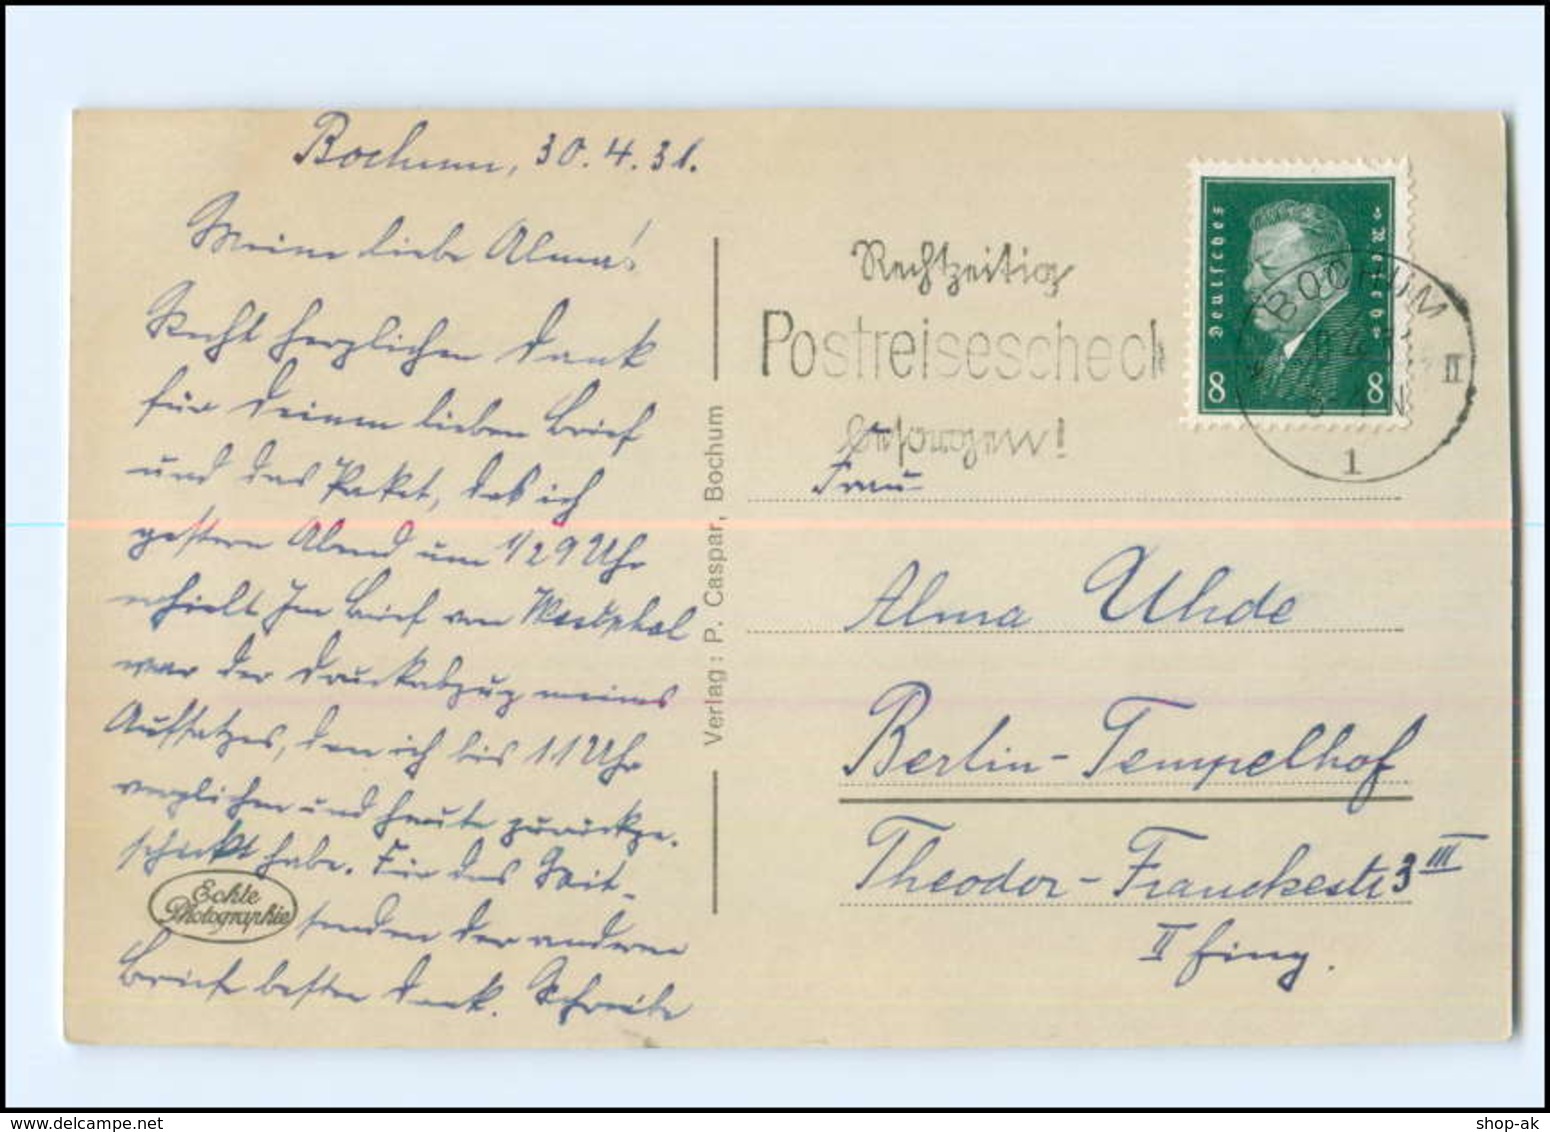 Bochum, 30.4.31.
Meine liebe Alma!
Recht herzlichen Dank
für Deinen lieben Brief
und das Paket, das ich
gestern Abend um 1/2 9 Uhr
erhielt. Im Brief von Westphal
war der Druckabzug meines
Aufsatzes, den ich bis 11 Uhr
verglichen und heute zurückge-
schickt habe. Für das Mit-
senden der anderen
Briefe besten Dank. Schreibe
Echte
Photographie
Verlag: P. Caspar, Bochum
Rechtzeitig
Postreisescheck
besorgen!
Deutsches Reich
8 8
BOCHUM
II
1
Frau
Alma Uhde
Berlin-Tempelhof
Theodor-Franckestr 3 III
II Eing.
shop-ak